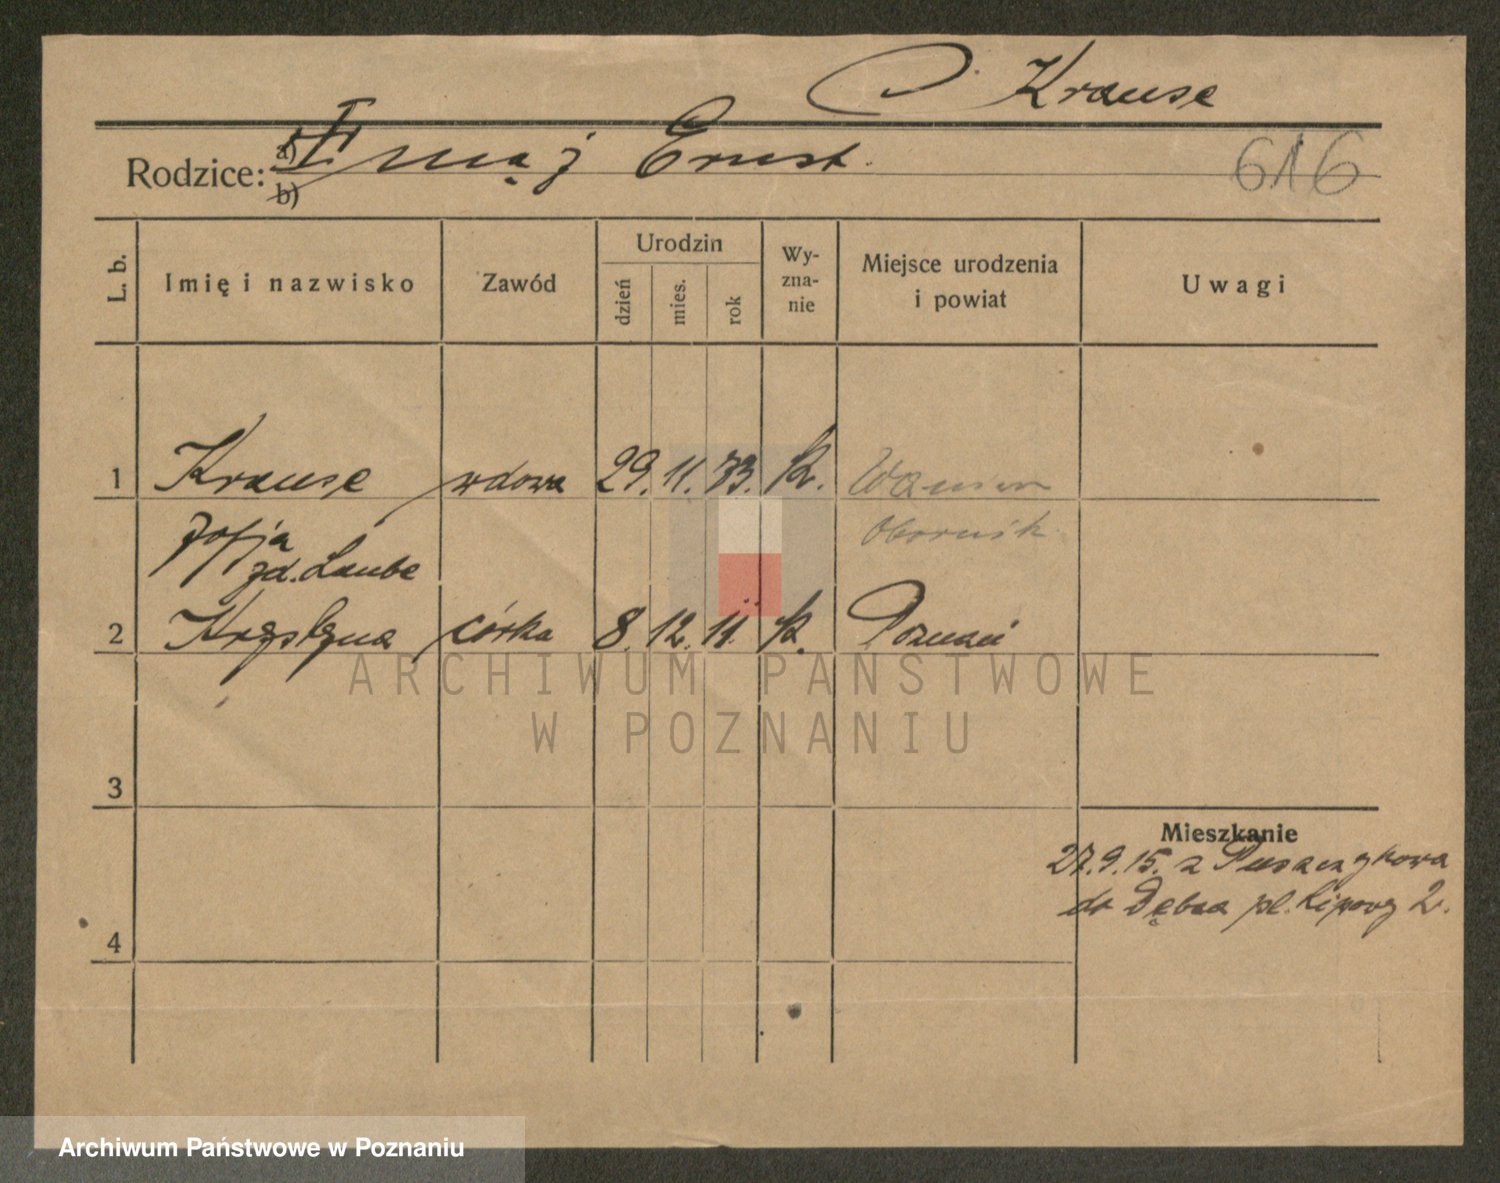 Krause
Rodzice: a) I mąż Ernst
b)
616
L. b.
Imię i nazwisko
Zawód
Urodzin
dzień
mies.
rok
Wy-
zna-
nie
Miejsce urodzenia
i powiat
Uwagi
1 Krause wdowa 29. 11. 73. k.
Zofja Obornik
zd. Laube
2 Krystyna córka 8. 12. 11. k. Poznań
ARCHIWUM PAŃSTWOWE
W POZNANIU
3
Mieszkanie
27.9.15. z Puszczykowa
do Dębca pl. Lipowy 2.
4
Archiwum Państwowe w Poznaniu